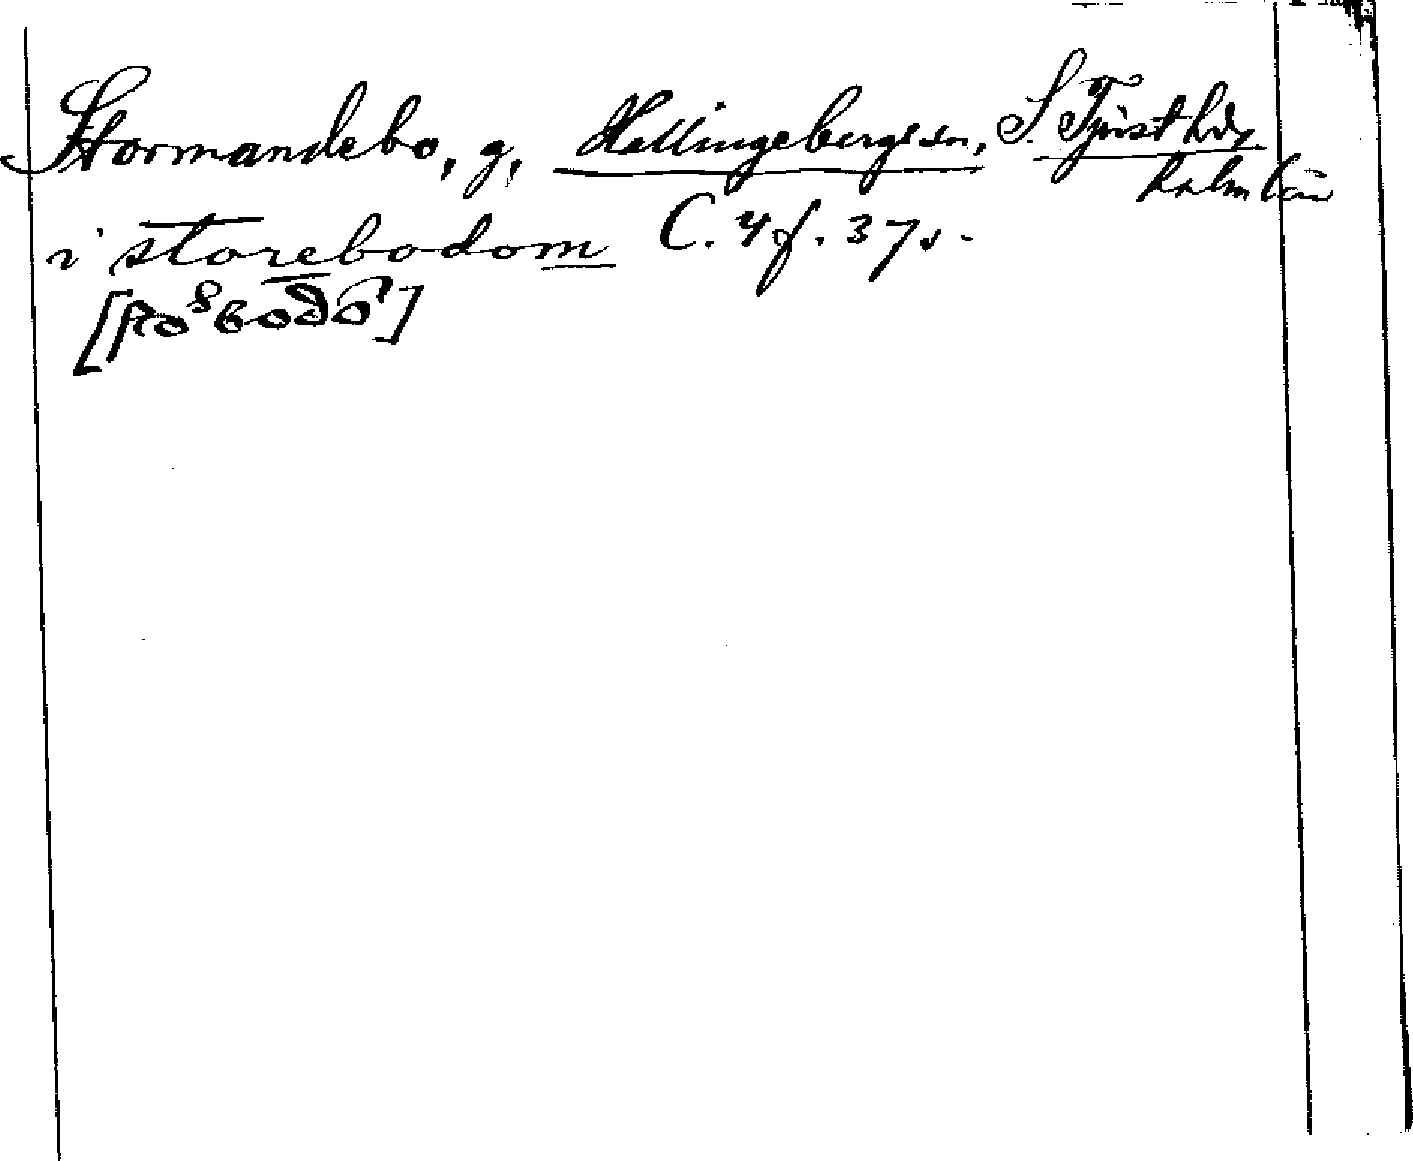 Stormandebo, g, Hallingebergs sn, S. Tjust hd,
Kalm län
i storebodom C. 4 f. 37 v.